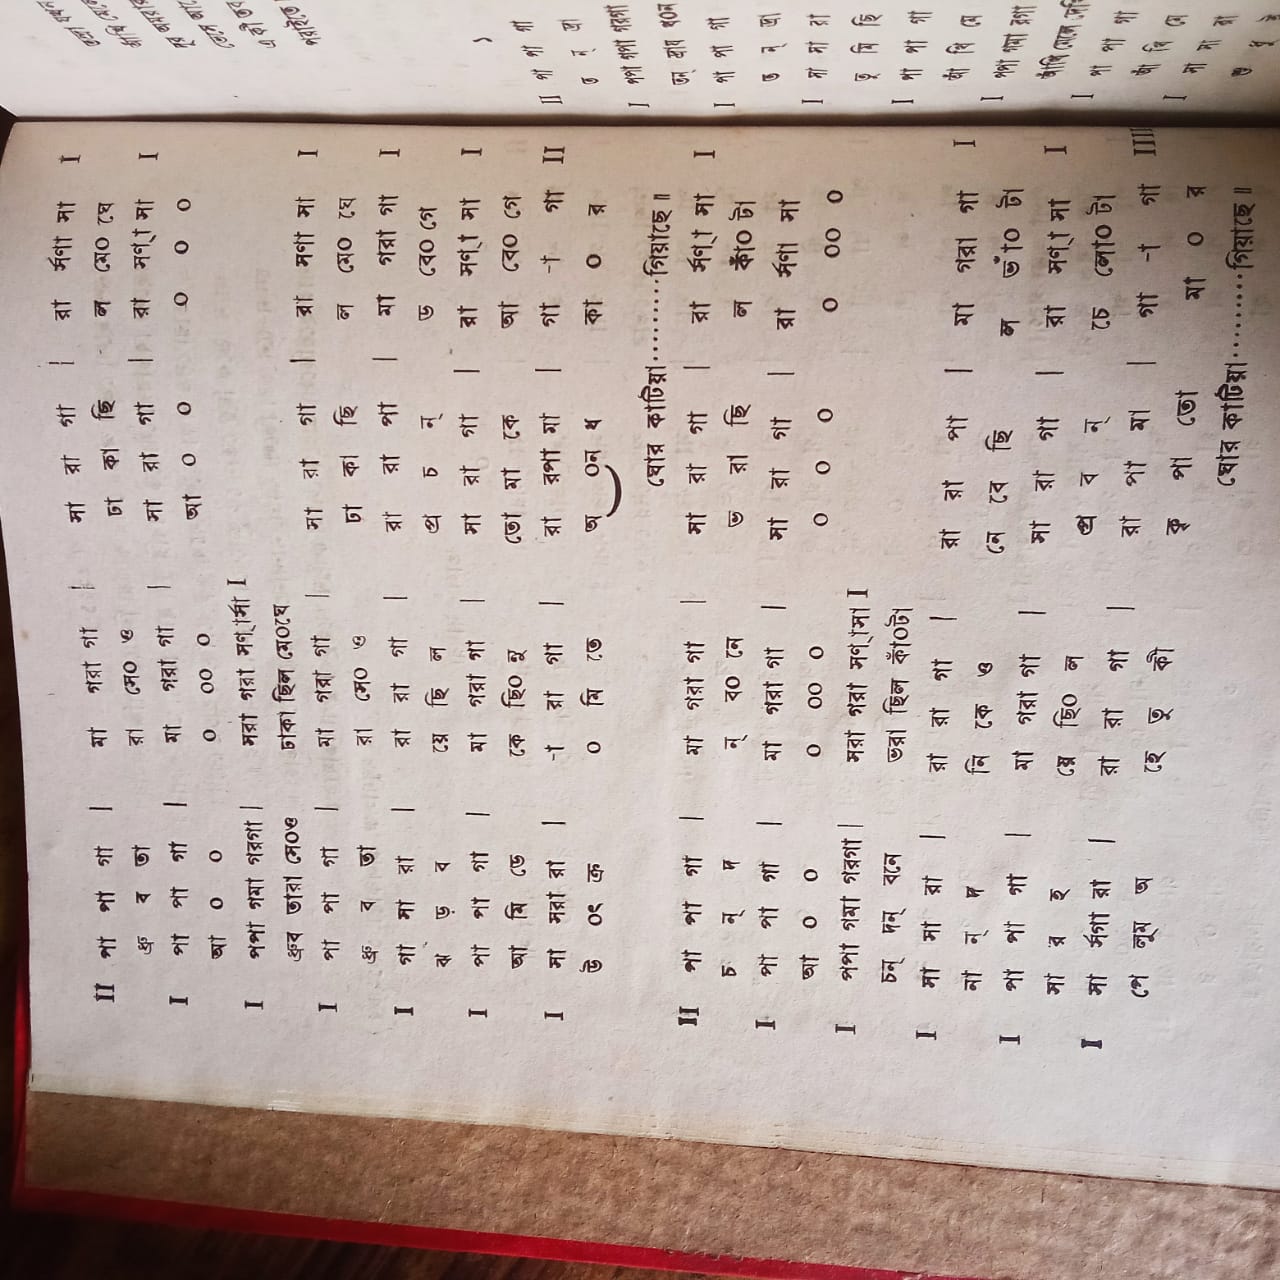 II পা পা গা | মা গরা গা | মা রা গা | রা র্সণা সা I
ধ্রু ব তা রা সে০ ও ঢা কা ছি ল মে০ ঘে
I পা পা গা | মা গরা গা | মা রা গা | রা সণ্‌া সা I
আ ০ ০ ০ ০০ ০ আ ০ ০ ০ ০ ০
I পপা গমা গরগা | মরা গরা সণ্‌র্সা I
ধ্রুব তারা সে০ও ঢাকা ছিল মে০ঘে
I পা পা গা | মা গরা গা | মা রা গা | রা সণা সা I
ধ্রু ব তা রা সে০ ও ঢা কা ছি ল মে০ ঘে
I গা মা রা | রা রা গা | রা রা পা | মা গরা গা I
ঝ ড় ব য়ে ছি ল প্র চ ন্ ড বে০ গে
I পা পা গা | মা গরা গা | মা রা গা | রা সণ্‌া সা I
আ মি ডে কে ছি০ নু তো মা কে আ বে০ গে
I মা মরা রা | -া রা গা | রা রপা মা | গা -া গা II
উ ০ৎ ক্র ০ মি তে অ ০ন ধ কা ০ র
ঘোর কাটিয়া.........গিয়াছে॥
II পা পা গা | মা গরা গা | মা রা গা | রা র্সণ্‌া সা I
চ ন্ দ ন্ ব০ নে ভ রা ছি ল কাঁ০ টা
I পা পা গা | মা গরা গা | মা রা গা | রা র্সণা সা
আ ০ ০ ০ ০০ ০ ০ ০ ০ ০ ০০ ০
I পপা গমা গরগা | মরা গরা সণ্‌সা I
চন্ দন্ বনে ভরা ছিল কাঁ০টা
I সা মা রা | রা রা গা | রা রা পা | মা গরা গা I
না ন্ দ নি কে ও নে বে ছি ল ভাঁ০ টা
I পা পা গা | মা গরা গা | মা রা গা | রা সণ্‌া সা I
সা র হ য়ে ছি০ ল প্র ব ন্ চে লো০ টা
I মা র্সগা রা | রা রা গা | রা পা মা | গা -া গা IIII
পে লুম অ হে তু কী কৃ পা তো মা ০ র
ঘোর কাটিয়া.........গিয়াছে॥
II পা পা গা
ত ন্ দ্রা
I পপা গপা গরগা
I পা পা গা
ত ন্ দ্রা
I সা মা রা
তু মি ছি
I পা পা গা
আঁ খি মে
I পপা গমা রগা
I পা পা গা
আঁ খি মে
I সা মা রা